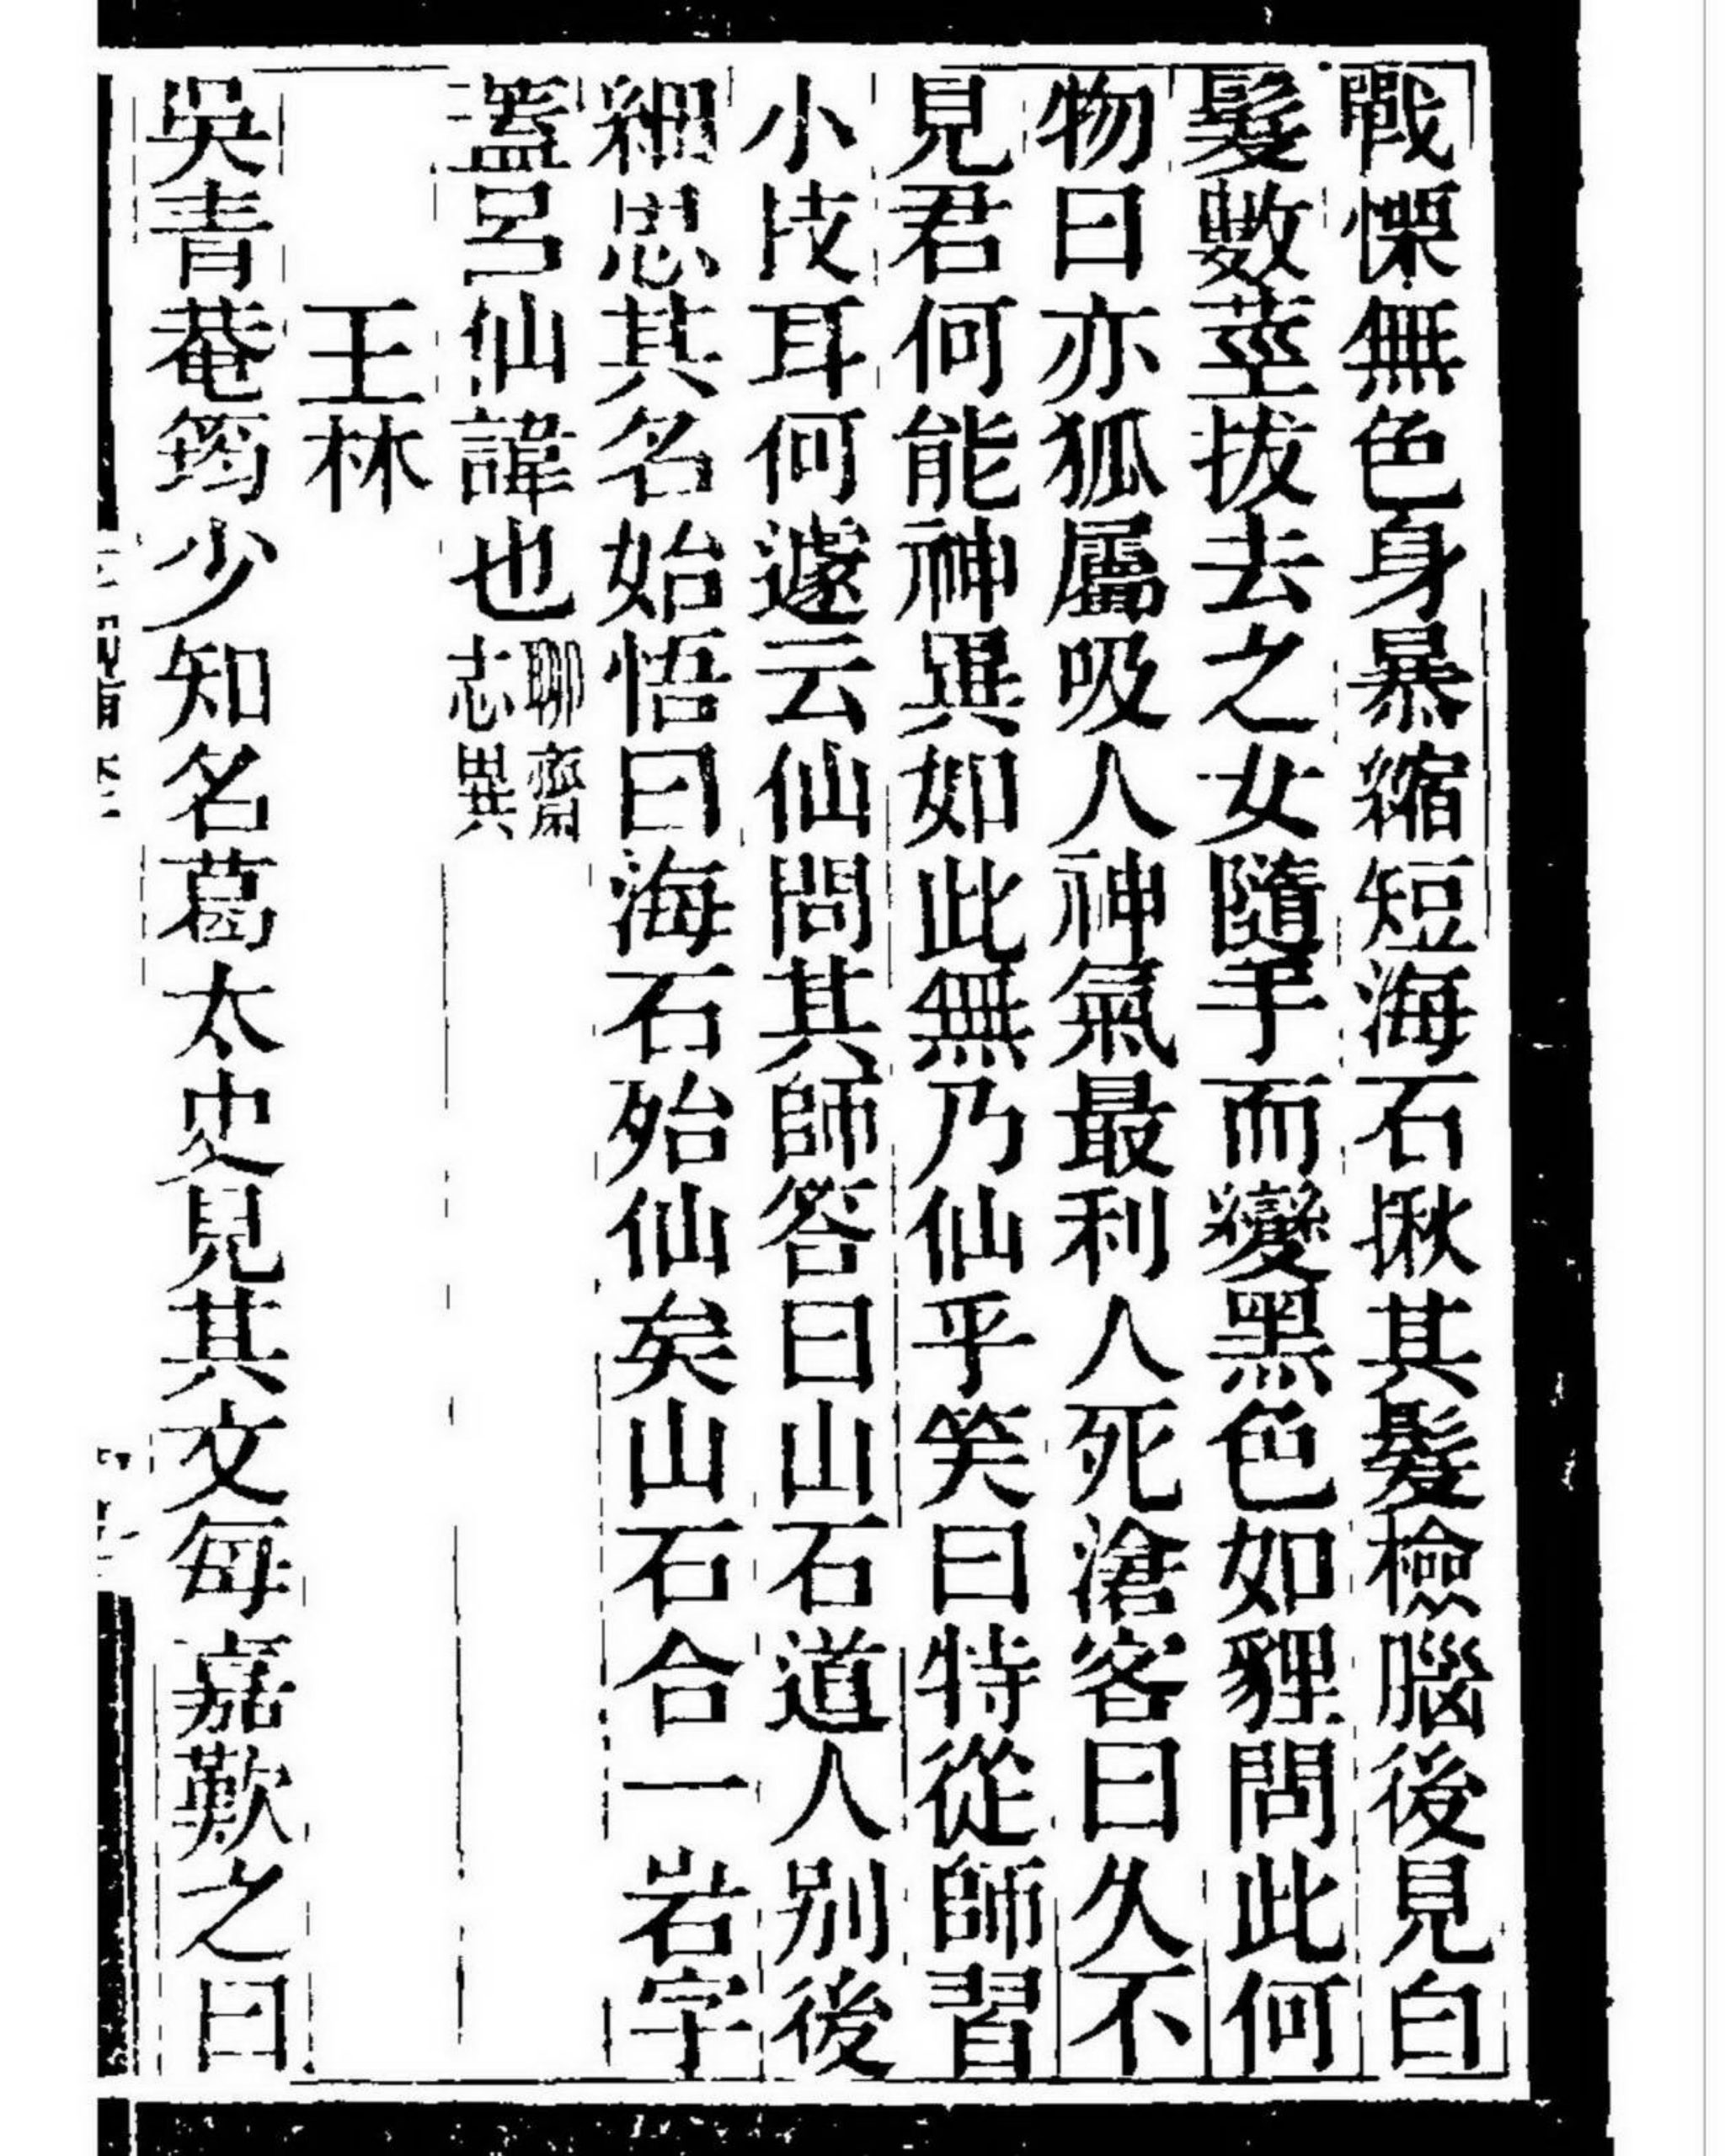 戰慄無色身暴縮短海石揪其髮檢腦後見白
髮數莖拔去之女隨手而變黑色如貍問此何
物曰亦狐屬吸人神氣最利人死滄客曰久不
見君何能神異如此無乃仙乎笑曰特從師習
小技耳何遽云仙問其師答曰山石道人別後
細思其名始悟曰海石殆仙矣山石合一岩字
蓋呂仙諱也聊齋
志異
王林
吳青菴筠少知名葛太史見其文每嘉歎之曰